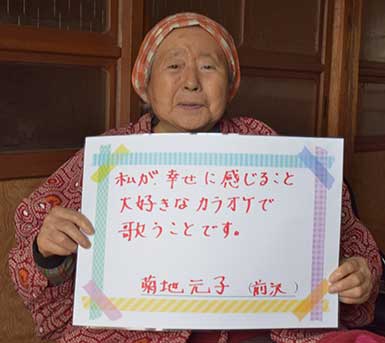 私が、幸せに感じること
大好きなカラオケで
歌うことです。
菊地元子 (前沢)